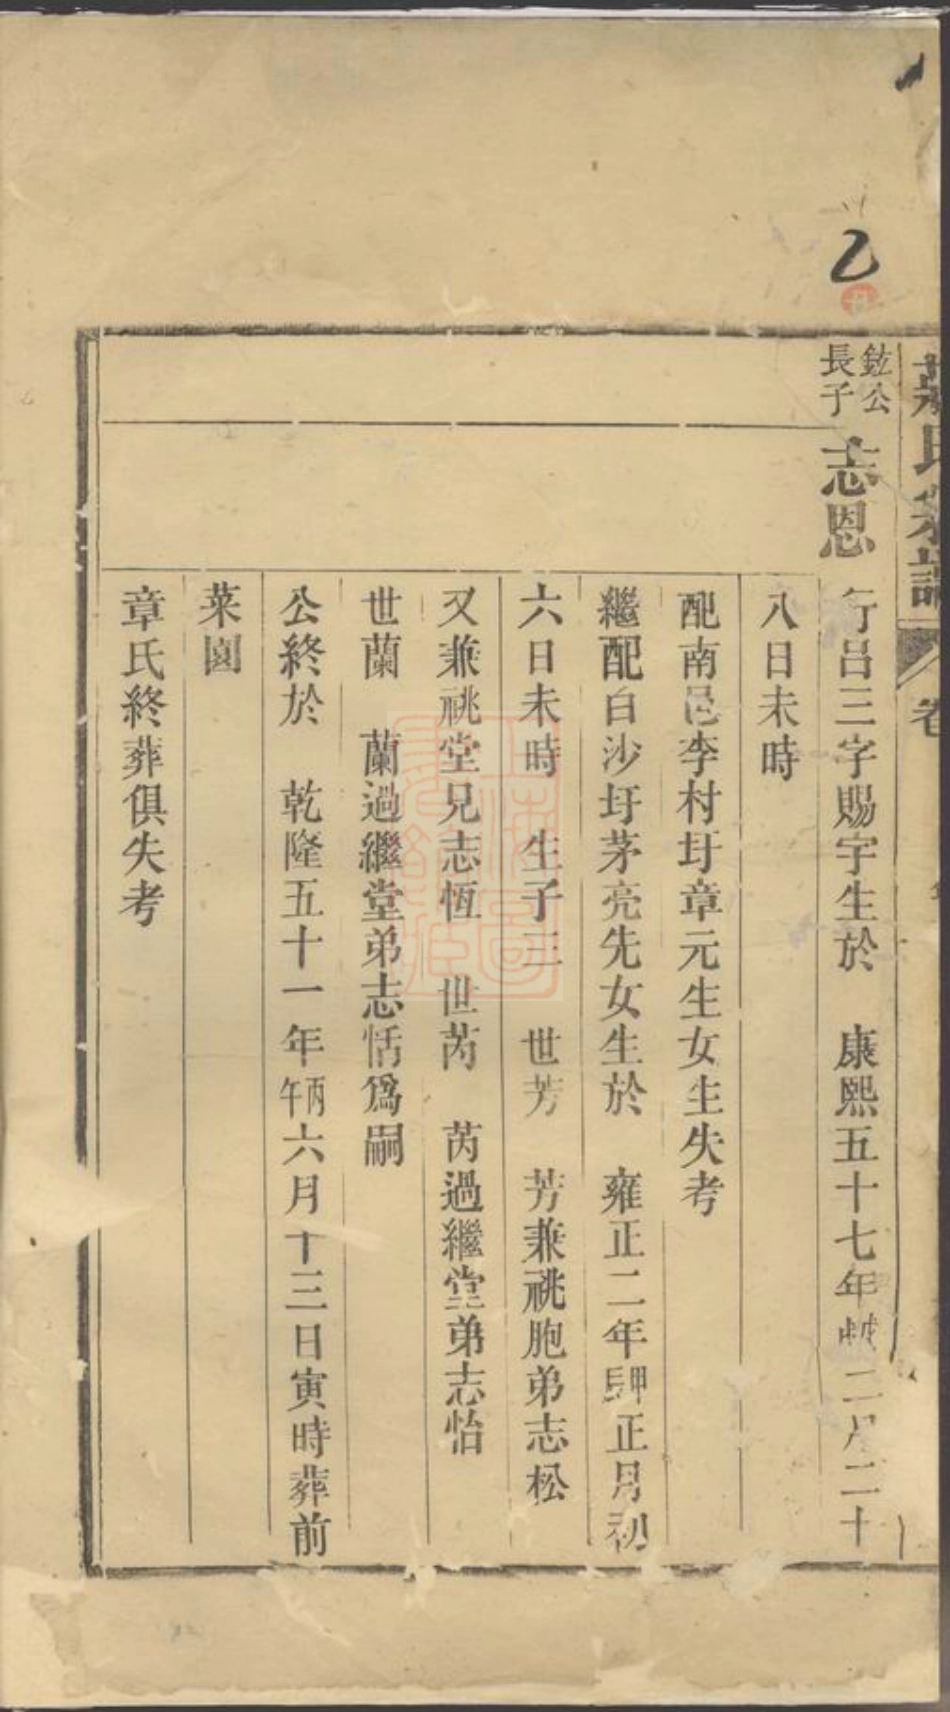 氏宗譜 卷
乙
鈜公長子 志恩 行吕三字賜宇生於 康熙五十七年戊戌二月二十
八日未時
配南邑李村圩章元生女生失考
繼配白沙圩茅亮先女生於 雍正二年甲辰正月初
六日未時 生子三 世芳 芳兼祧胞弟志松
又兼祧堂兄志恆 世芮 芮過繼堂弟志怡
世蘭 蘭過繼堂弟志恬爲嗣
公終於 乾隆五十一年丙午六月十三日寅時葬前
菜園
章氏終葬俱失考